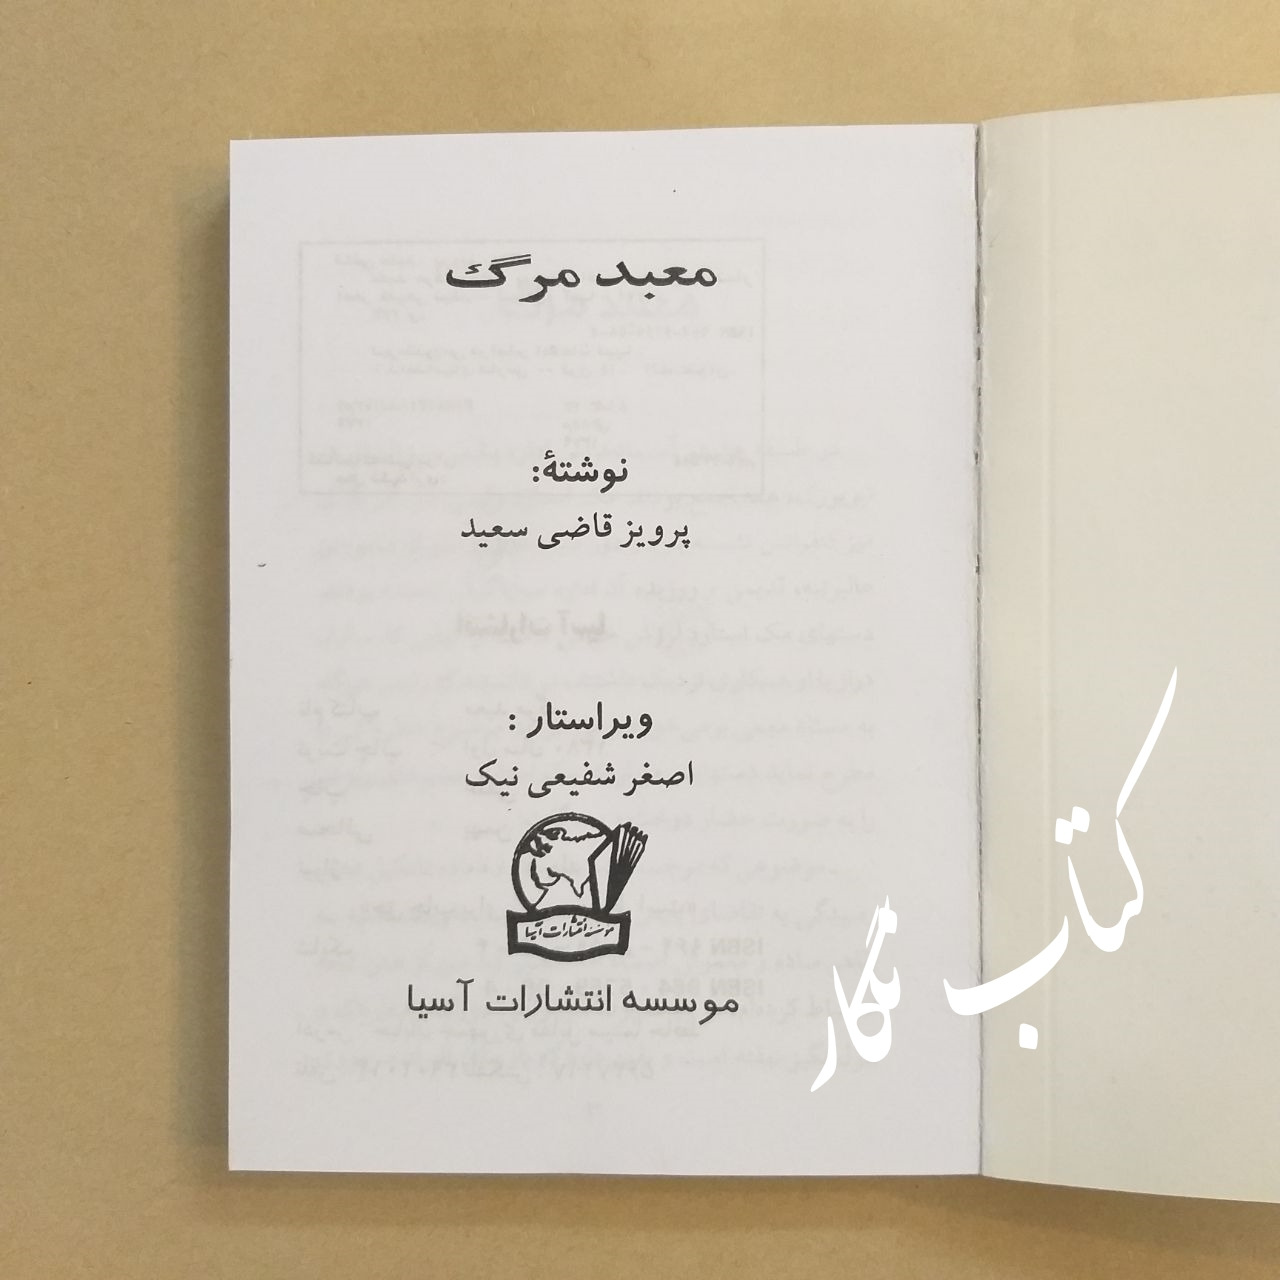 معبد مرگ
نوشتهٔ:
پرویز قاضی سعید
ویراستار :
اصغر شفیعی نیک
موسسه انتشارات آسیا
موسسه انتشارات آسیا
کتاب نگار